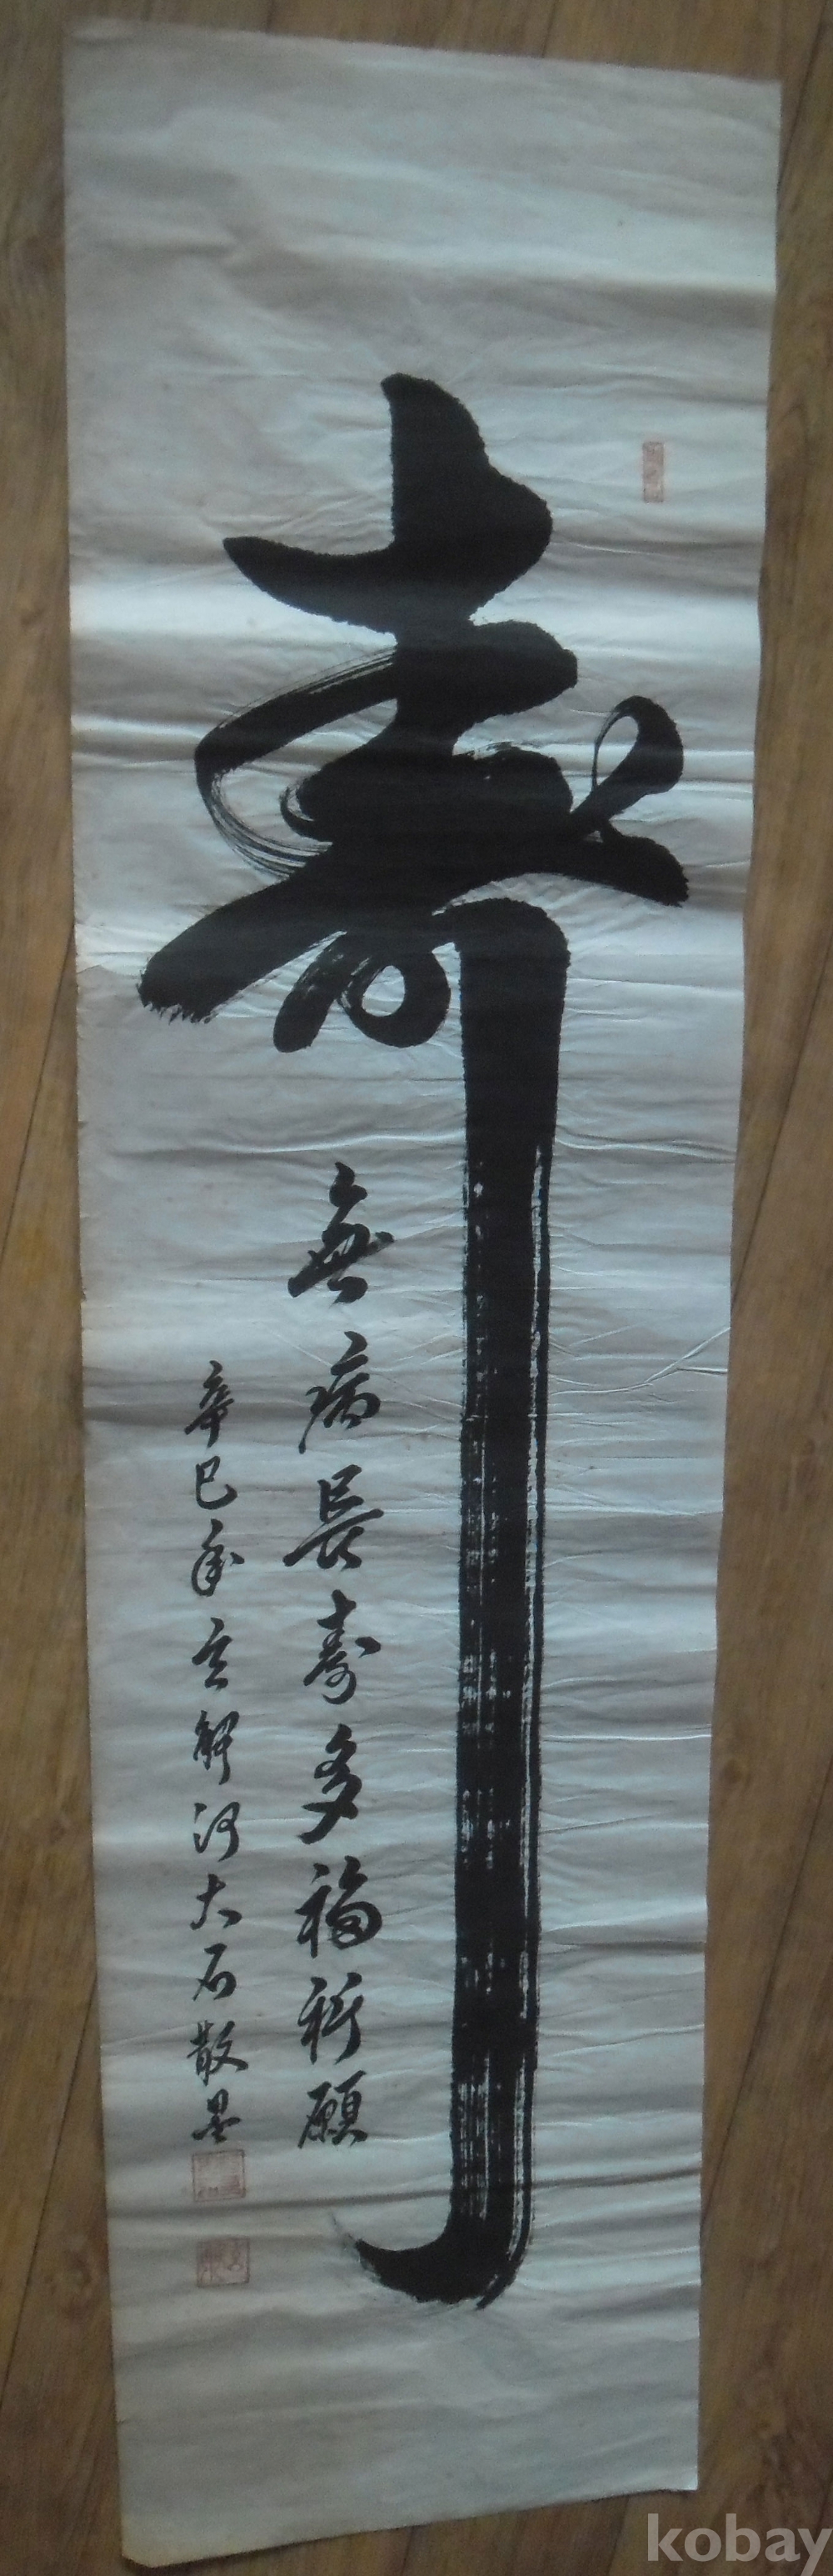 寿
無病長壽多福祈願
辛巳年立解河大石散墨
kobay